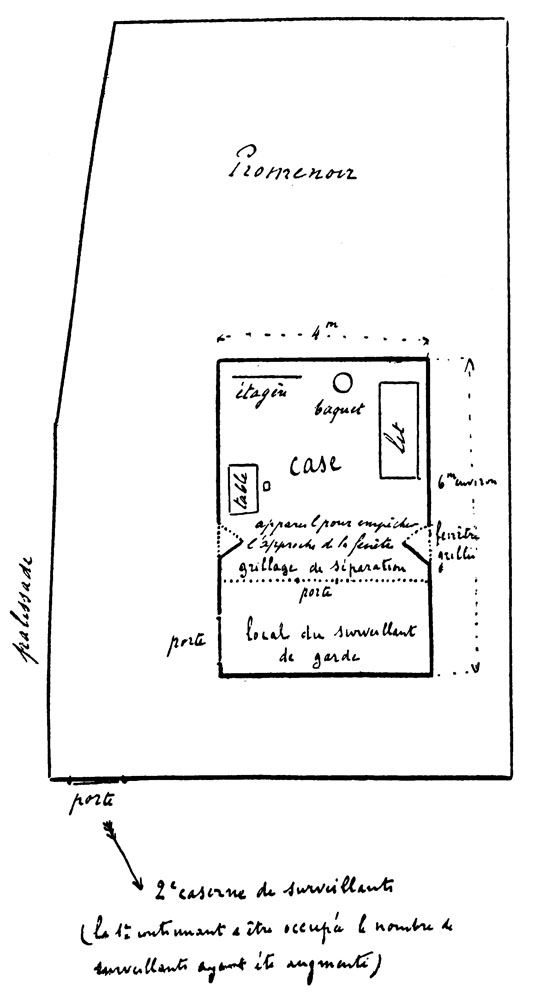 Promenoir
4m
étagère
baquet
lit
case
table
6m environ
appareil pour empêcher
l'approche de la fenêtre
fenêtre
grillée
grillage de séparation
porte
palissade
porte
local du surveillant
de garde
porte
2e caserne de surveillants
(la 1re continuant à être occupée le nombre de
surveillants ayant été augmenté)